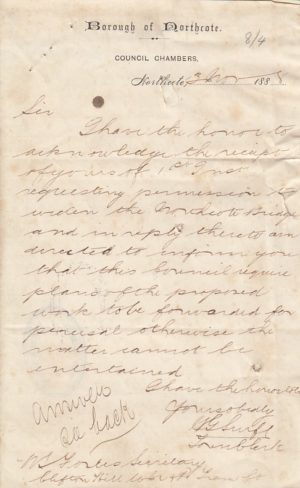 Borough of Northcote.
8/4
COUNCIL CHAMBERS,
Northcote, 2 Nov 1888
Sir
I have the honor to
acknowledge the receipt
of yours of 1st Inst
requesting permission to
widen the Northcote Bridge
and in reply thereto am
directed to inform you
that this Council require
plans of the proposed
work to be forwarded for
perusal otherwise the
matter cannot be
entertained
I have the honor to
Yours obdly
Town Clerk
answer
on back
Secretary
Clifton Hill